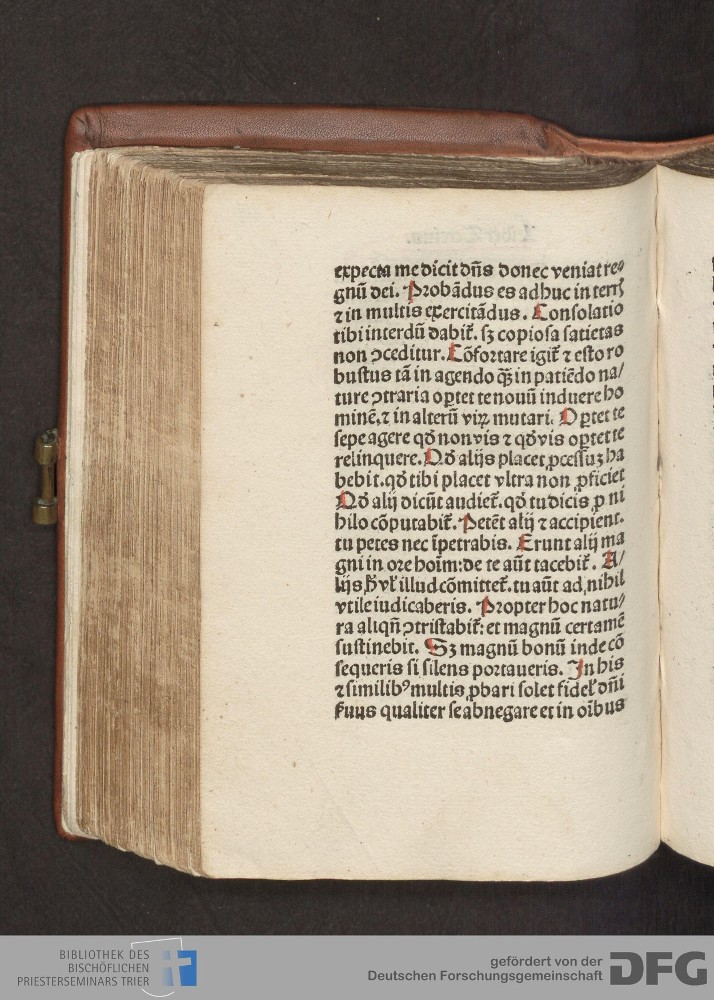 expecta me dicit dñs donec veniat re⸗
gnũ dei. Probãdus es adhuc in terrꝭ
⁊ in multis exercitãdus. Consolatio
tibi interdũ dabit᷑. sꝫ copiosa satietas
non ꝯceditur. Cõfortare igit᷑ ⁊ esto ro
bustus tã in agendo qꝫ̃ in patiẽdo na/
ture ꝯtraria oꝑtet te nouũ induere ho
minẽ, ⁊ in alterũ viꝝ mutari. Oꝑtet te
sepe agere qd̃ non vis ⁊ qd̃ vis oꝑtet te
relinquere. Qd̃ alijs placet ꝓcessuꝫ ha
bebit. qd̃ tibi placet vltra non ꝓficiet
Qd̃ alij dicũt audiet᷑. qd̃ tu dicis ꝓ ni
hilo cõputabit᷑. Petẽt alij ⁊ accipient.
tu petes nec ĩpetrabis. Erunt alij ma
gni in ore hoĩm: de te aũt tacebit᷑. A/
lijs h̾ vł illud cõmittet᷑. tu aũt ad nihil
vtile iudicaberis. Propter hoc natu⸗
ra aliqñ ꝯtristabit᷑: et magnũ certamẽ
sustinebit. Sꝫ magnũ bonũ inde cõ
sequeris si silens portaueris. In his
⁊ similibꝰ multis ꝓbari solet fideł dñi
seruus qualiter se abnegare et in oĩbus
BIBLIOTHEK DES
BISCHÖFLICHEN
PRIESTERSEMINARS TRIER
gefördert von der
Deutschen Forschungsgemeinschaft
DFG